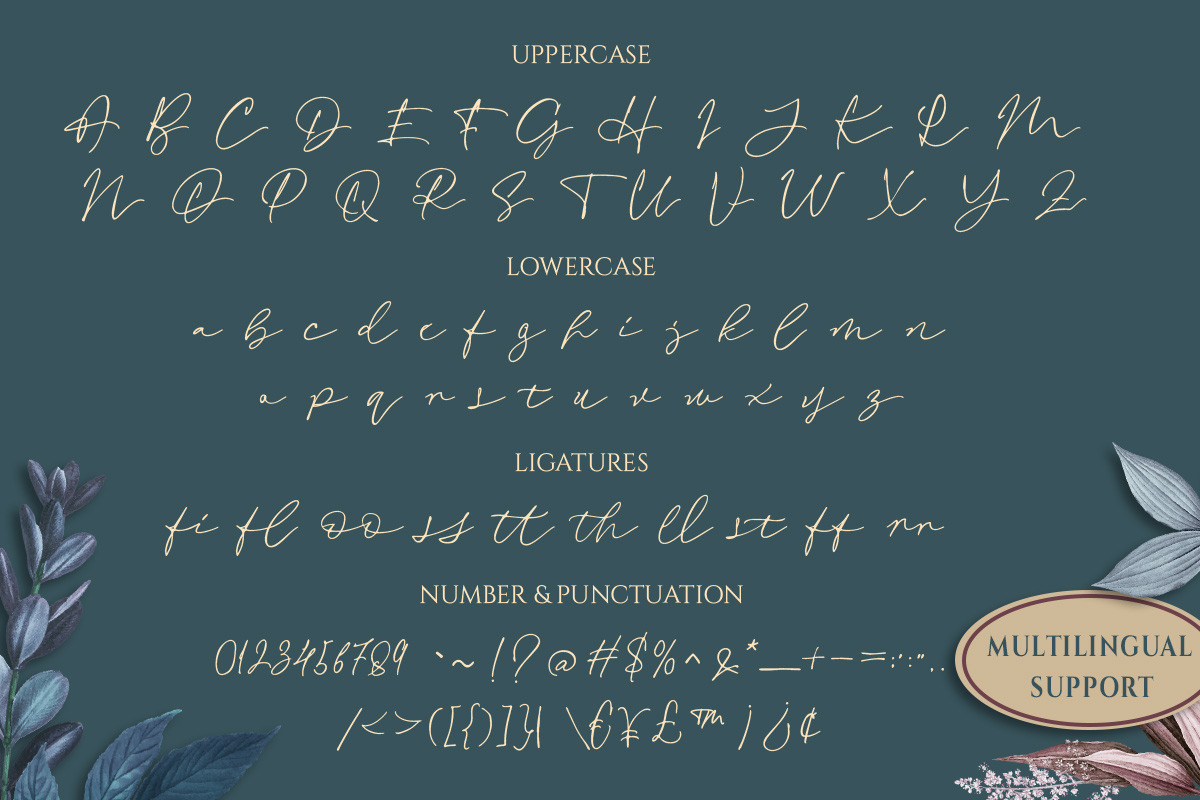 UPPERCASE
A B C D E F G H I J K L M
N O P Q R S T U V W X Y Z
LOWERCASE
a b c d e f g h i j k l m n
o p q r s t u v w x y z
LIGATURES
fi fl oo ss tt th ll st ff rr
NUMBER & PUNCTUATION
0123456789 `~ !?@#$%^&*_+-=:;'",.
/<>([{)]}| \€¥£™¡¿¢
MULTILINGUAL
SUPPORT